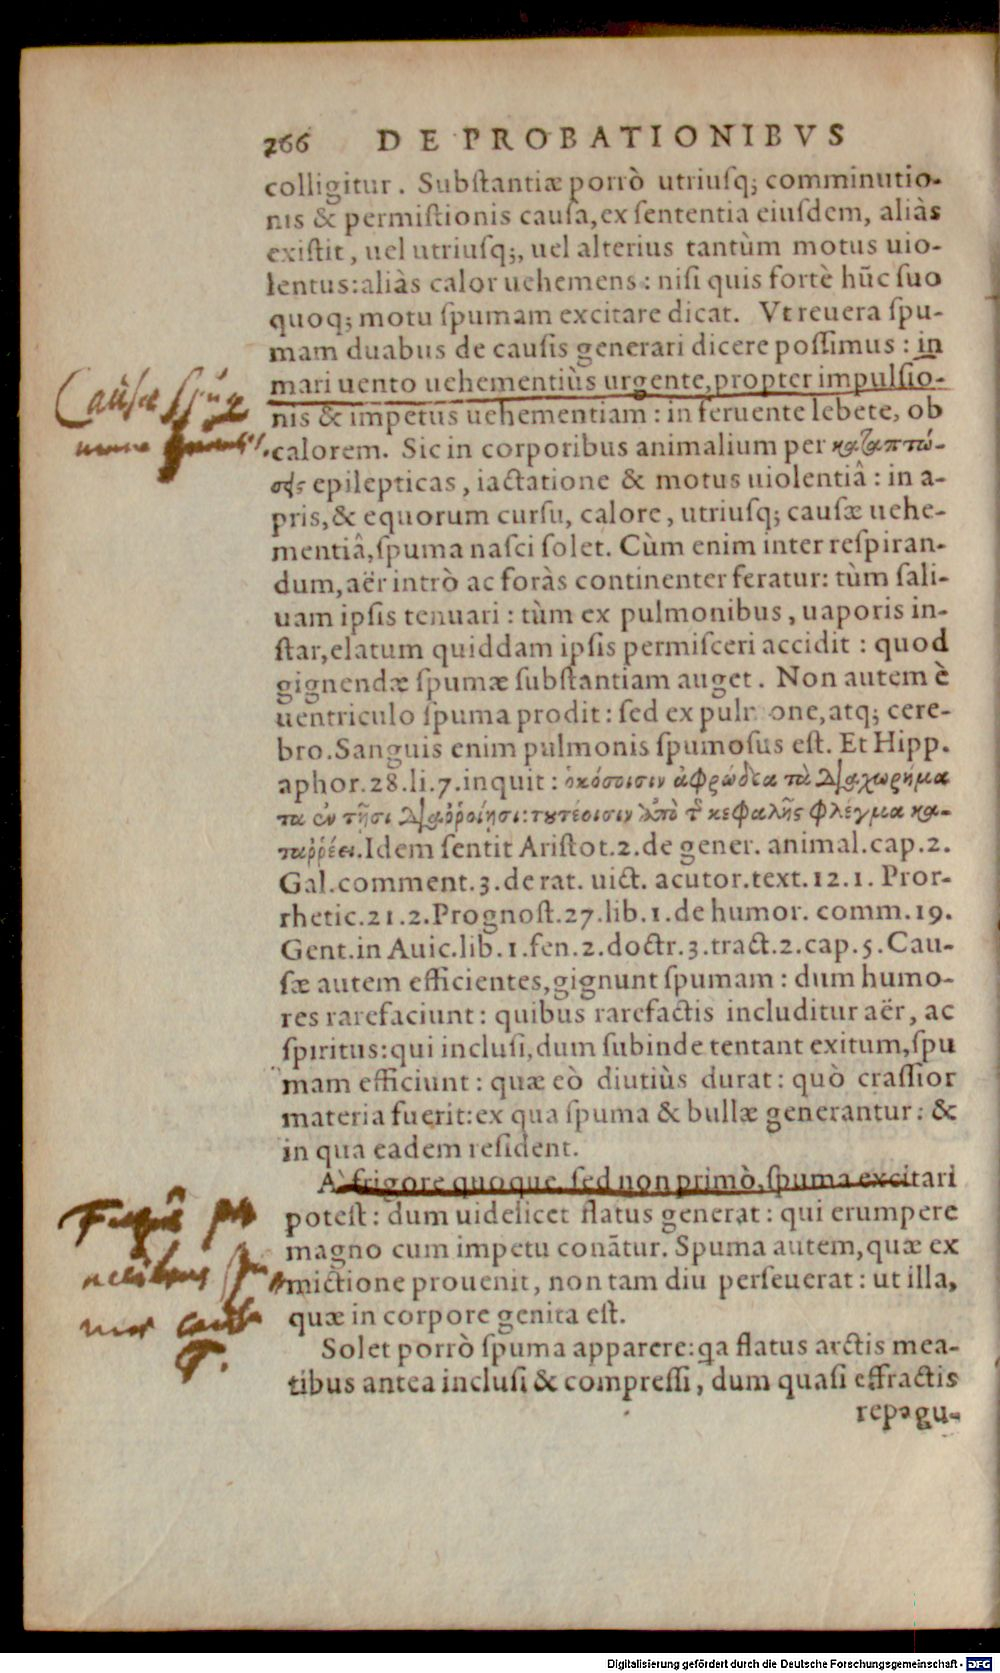 266 DE PROBATIONIBVS
colligitur. Substantiæ porrò utriusq; comminutio-
nis & permistionis causa, ex sententia eiusdem, aliàs
existit, uel utriusq;, uel alterius tantùm motus uio-
lentus: aliàs calor uehemens: nisi quis fortè hũc suo
quoq; motu spumam excitare dicat. Vt reuera spu-
mam duabus de causis generari dicere possimus: in
mari uento uehementiùs urgente, propter impulsio-
Causa
nis & impetus uehementiam: in feruente lebete, ob
calorem. Sic in corporibus animalium per καταπτώ-
σεις epilepticas, iactatione & motus uiolentiâ: in a-
pris, & equorum cursu, calore, utriusq; causæ uehe-
mentiâ, spuma nasci solet. Cùm enim inter respiran-
dum, aër intrò ac foràs continenter feratur: tùm sali-
uam ipsis tenuari: tùm ex pulmonibus, uaporis in-
star, elatum quiddam ipsis permisceri accidit: quod
gignendæ spumæ substantiam auget. Non autem è
uentriculo spuma prodit: sed ex pulmone, atq; cere-
bro. Sanguis enim pulmonis spumosus est. Et Hipp.
aphor.28.li.7.inquit: ὁκόσοισιν ἀφρώδεα τὰ διαχωρήμα
τα ἐν τῇσι διαῤῥοίῃσι: τουτέοισιν ἀπὸ τῆς κεφαλῆς φλέγμα κα-
ταῤῥέει. Idem sentit Aristot.2.de gener. animal.cap.2.
Gal.comment.3.de rat. uict. acutor.text.12.1. Pror-
rhetic.21.2.Prognost.27.lib.1.de humor. comm.19.
Gent.in Auic.lib.1.fen.2.doctr.3.tract.2.cap.5.Cau-
sæ autem efficientes, gignunt spumam: dum humo-
res rarefaciunt: quibus rarefactis includitur aër, ac
spiritus: qui inclusi, dum subinde tentant exitum, spu
mam efficiunt: quæ eò diutiùs durat: quò crassior
materia fuerit: ex qua spuma & bullæ generantur: &
in qua eadem resident.
A` frigore quoque, sed non primò, spuma excitari
potest: dum uidelicet flatus generat: qui erumpere
magno cum impetu conãtur. Spuma autem, quæ ex
mictione prouenit, non tam diu perseuerat: ut illa,
quæ in corpore genita est.
Solet porrò spuma apparere: qa flatus arctis mea-
tibus antea inclusi & compressi, dum quasi effractis
repagu-
Digitalisierung gefördert durch die Deutsche Forschungsgemeinschaft - DFG